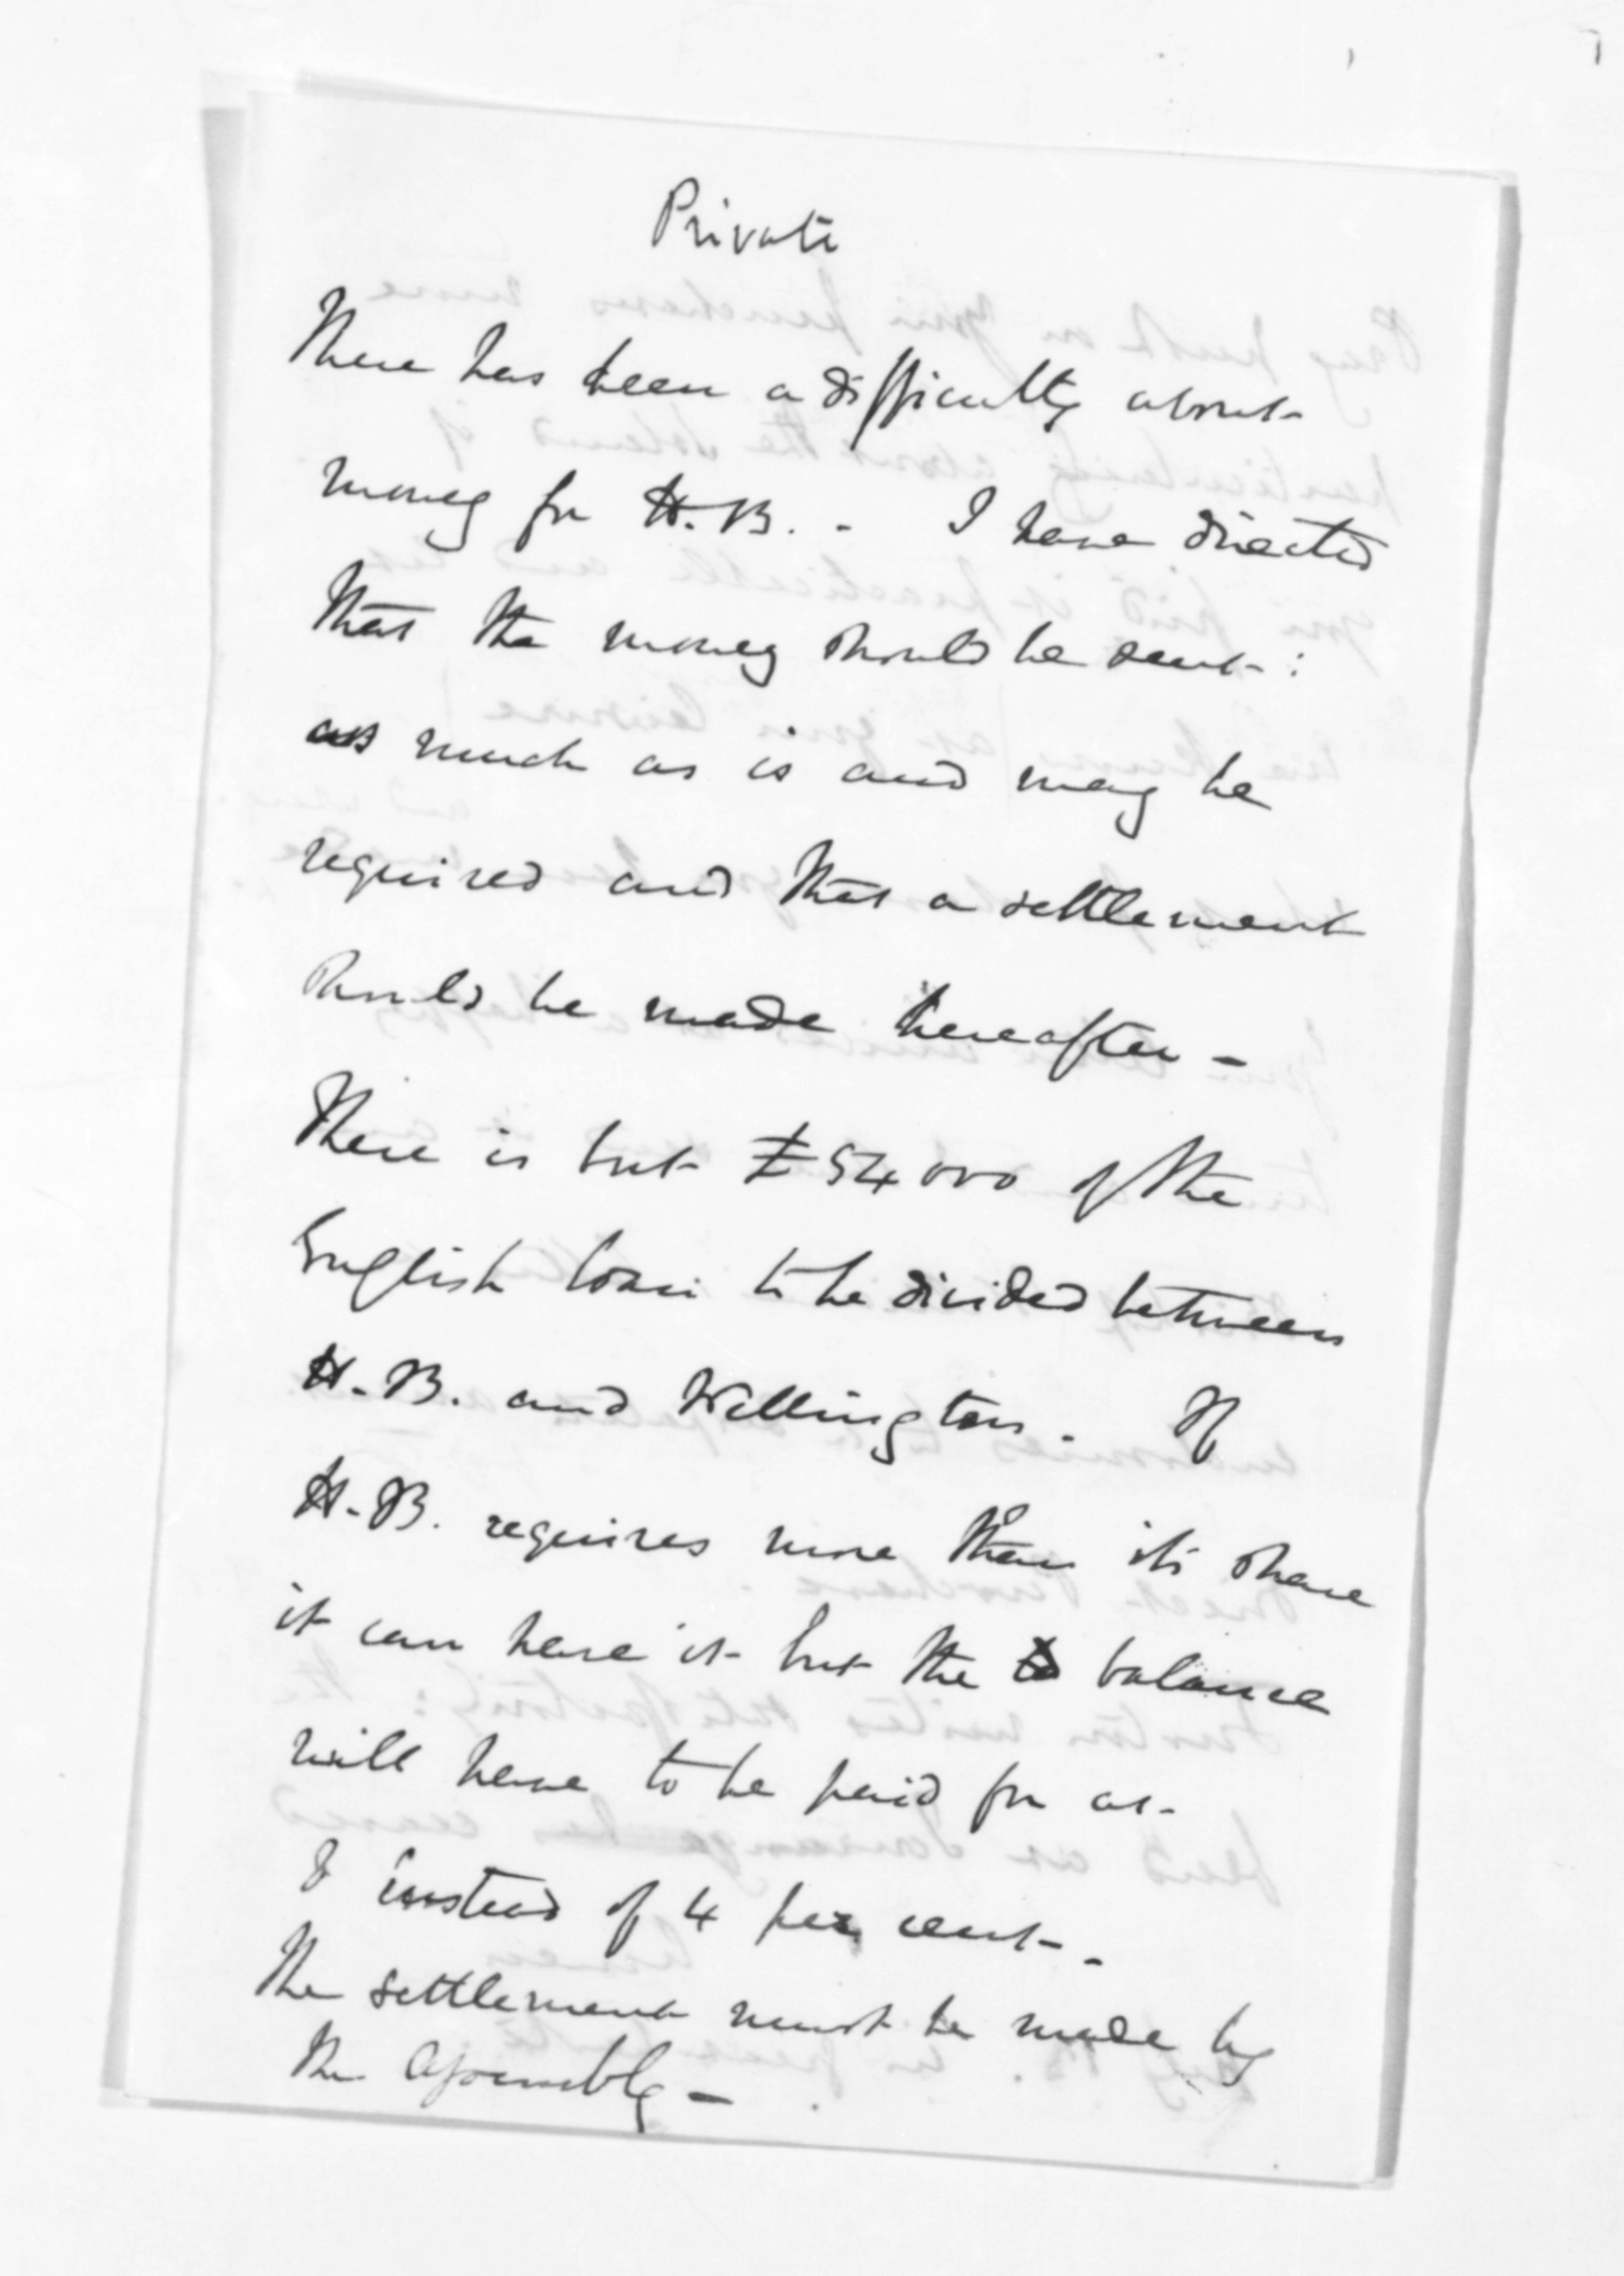 Private
There has been a difficulty about
money for H.B. - I have directed
that the money should be sent:
as much as is and may be
required and that a settlement
should be made hereafter -
There is but £54000 of the
English loan to be divided between
H.B. and Wellington. If
H.B. requires more than its share
it can have it but the balance
will have to be paid for at
8 instead of 4 per cent -.
The settlement must be made by
the Assembly -